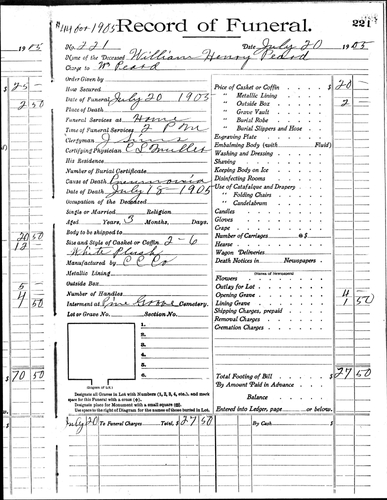 1905 Record of Funeral. 221
No. 221 Date July 20 1905
Name of the Deceased William Henry Peard
Charge to Wm Peard
Order Given by
How Secured
Date of Funeral July 20 1905
Place of Death
Funeral Services at Home
Time of Funeral Services 2 P M
Clergyman J Sims
Certifying Physician
His Residence
Number of Burial Certificate
Cause of Death Pneumonia
Date of Death July 18 - 1905
Occupation of the Deceased
Single or Married Religion
Aged Years, 3 Months, Days.
Body to be shipped to
Size and Style of Casket or Coffin 2-6
White Plush
Manufactured by C C Co
Metallic Lining
Outside Box
Number of Handles
Interment at Pine Grove Cemetery.
Lot or Grave No. Section No.
1.
2.
3.
4.
5.
6.
(Diagram of Lot.)
Designate all Graves in Lot with Numbers (1, 2, 3, 4, etc.), and mark
space for this Funeral with a cross (x).
Designate place for Monument with a small square (□).
Use space to the right of Diagram for the names of those buried in Lot.
July 20 To Funeral Charges Total, $ 27 50
Price of Casket or Coffin $ 20
" Metallic Lining
" Outside Box 2
" Grave Vault
" Burial Robe
" Burial Slippers and Hose
Engraving Plate
Embalming Body (with Fluid)
Washing and Dressing
Shaving
Keeping Body on Ice
Disinfecting Rooms
Use of Catafalque and Drapery
" Folding Chairs
" Candelabrum
Candles
Gloves
Crape
Number of Carriages @ $
Hearse
Wagon Deliveries
Death Notices in Newspapers
(Names of Newspapers)
Flowers
Outlay for Lot
Opening Grave 4
Lining Grave 1 50
Shipping Charges, prepaid
Removal Charges
Cremation Charges
Total Footing of Bill $ 27 50
By Amount Paid in Advance
Balance
Entered into Ledger, page or below.
By Cash
1905
$ 25
2 50
20 50
12
5
4
1 50
$ 70 50